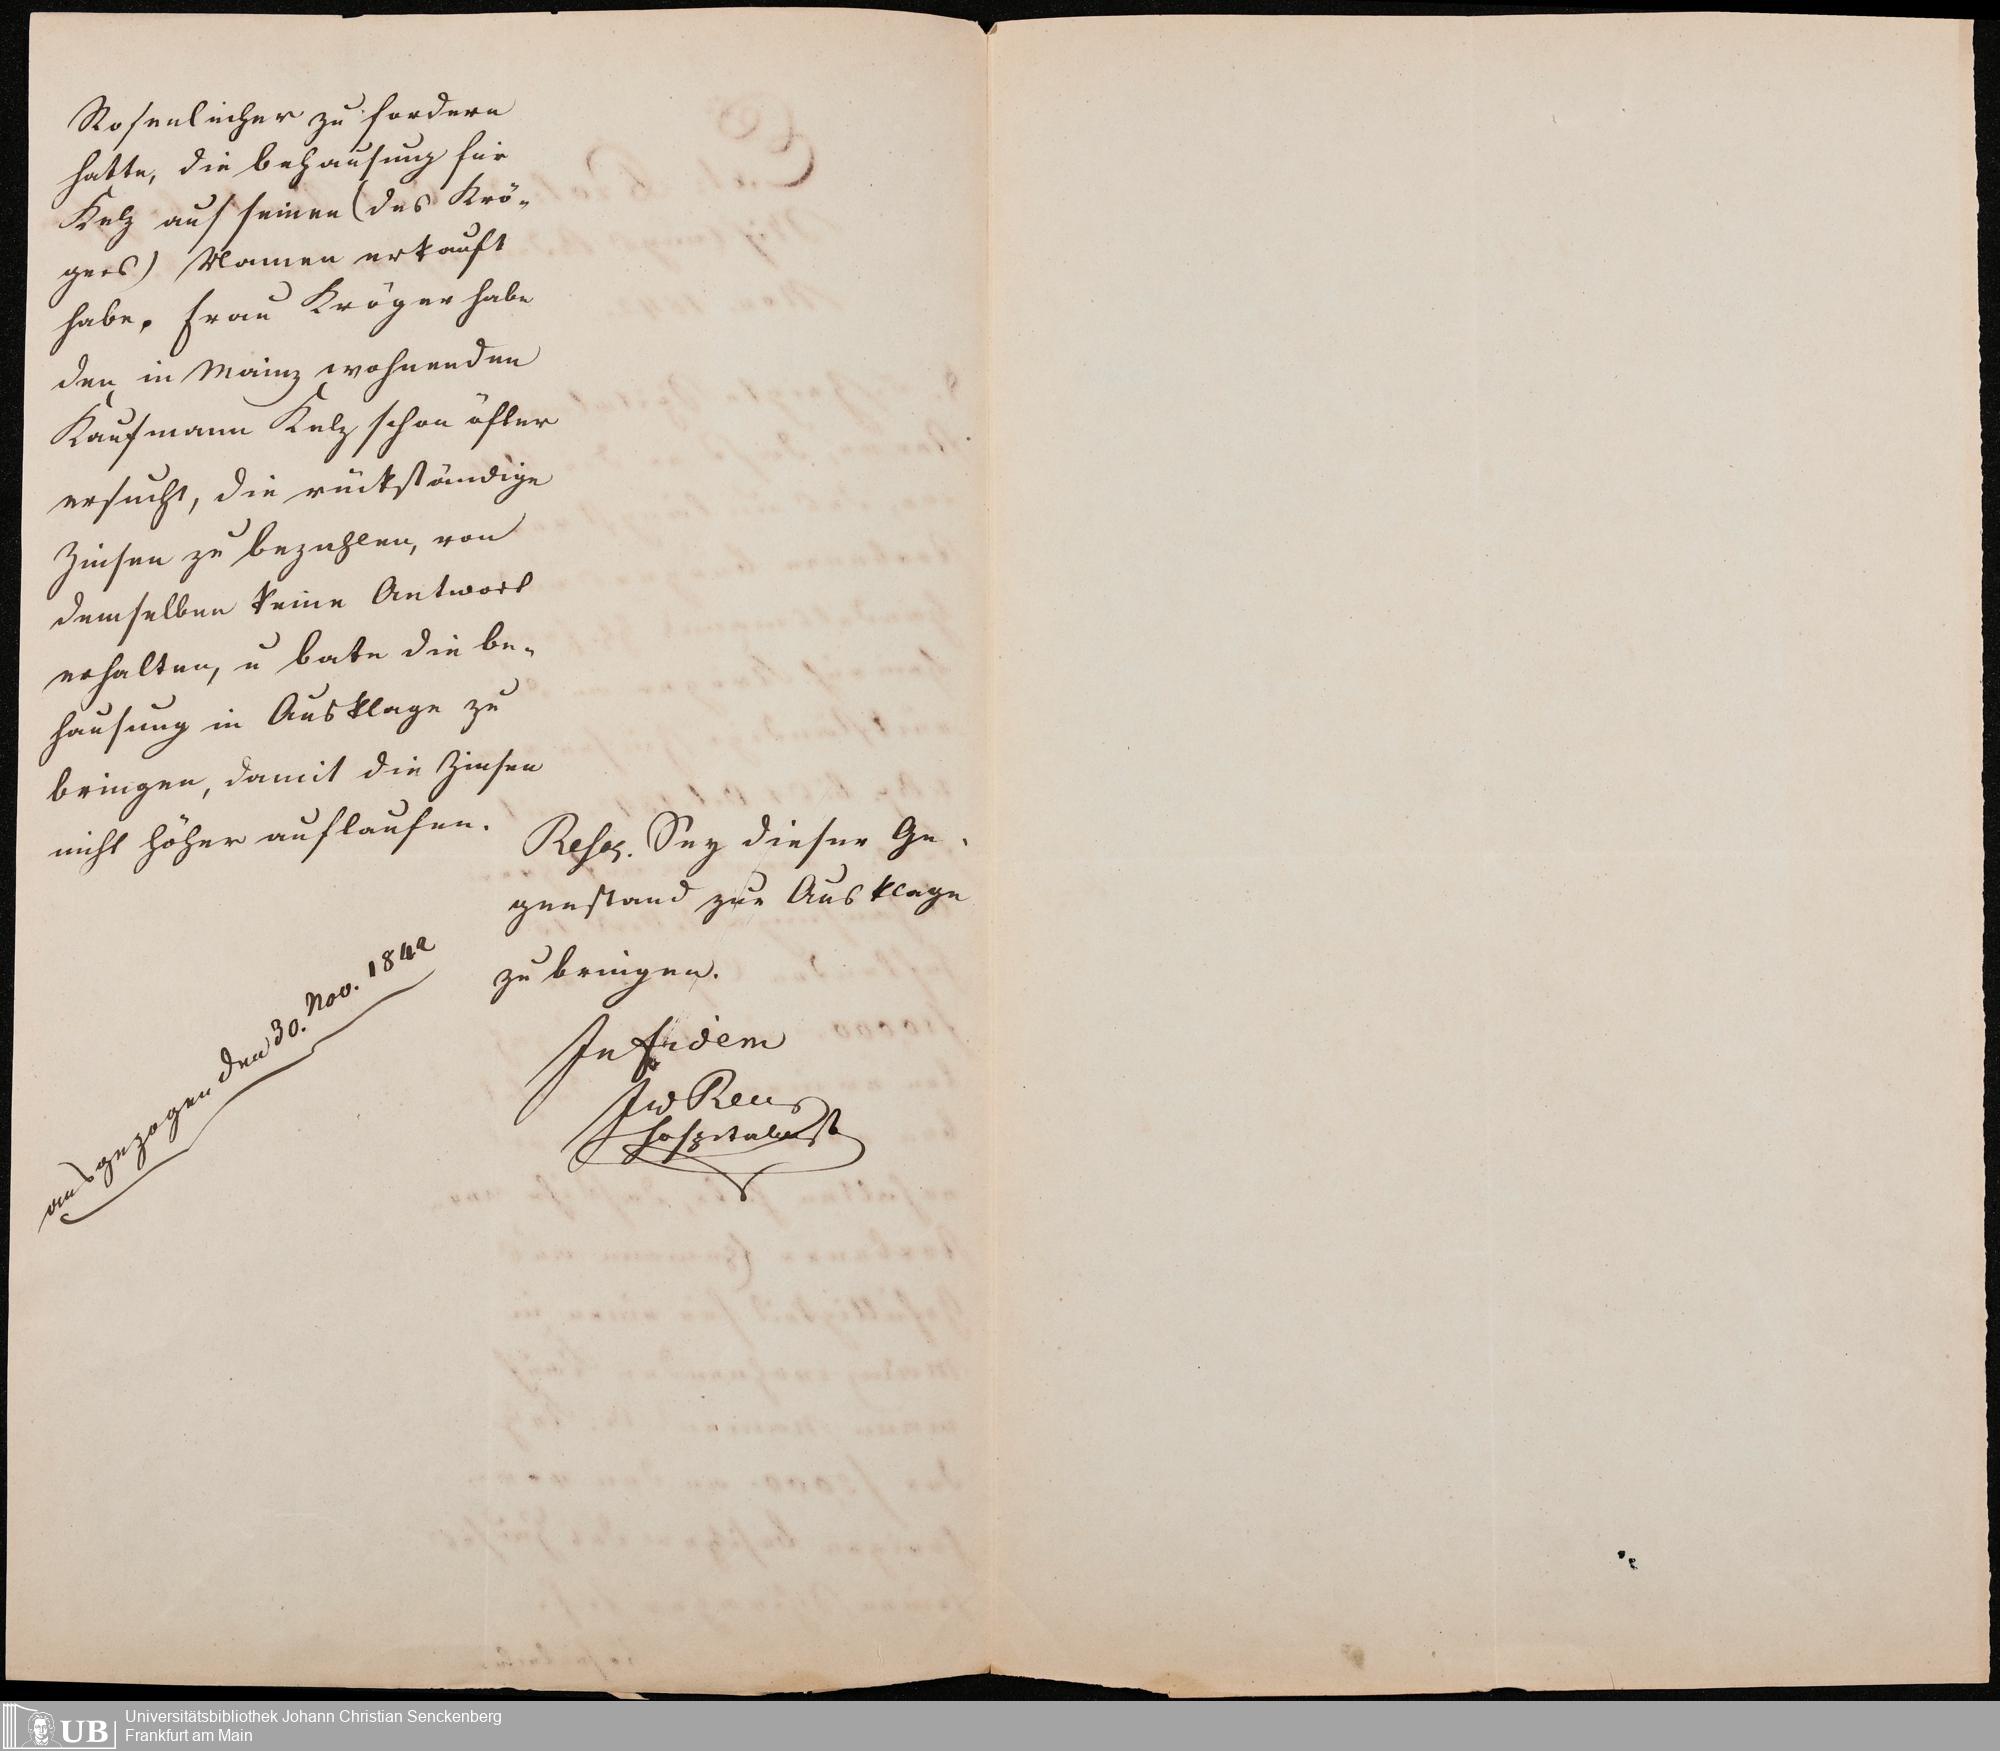 Rosenlecher zu fordern
hatte, die Behausung für
Kelz auf seinen (des Krö-
gers) Namen erkauft
habe. Frau Kröger habe
den in Mainz wohnenden
Kaufmann Kelz schon öfter
ersucht, die rückständige
Zinsen zu bezahlen, von
demselben keine Antwort
erhalten, u bate die Be-
hausung in Ausklage zu
bringen, damit die Zinsen
nicht höher auflaufen.
Sey dieser Ge-
genstand zur Ausklage
zu bringen.
In Fidem
ausgezogen den 30. Nov. 1842
UB
Universitätsbibliothek Johann Christian Senckenberg
Frankfurt am Main